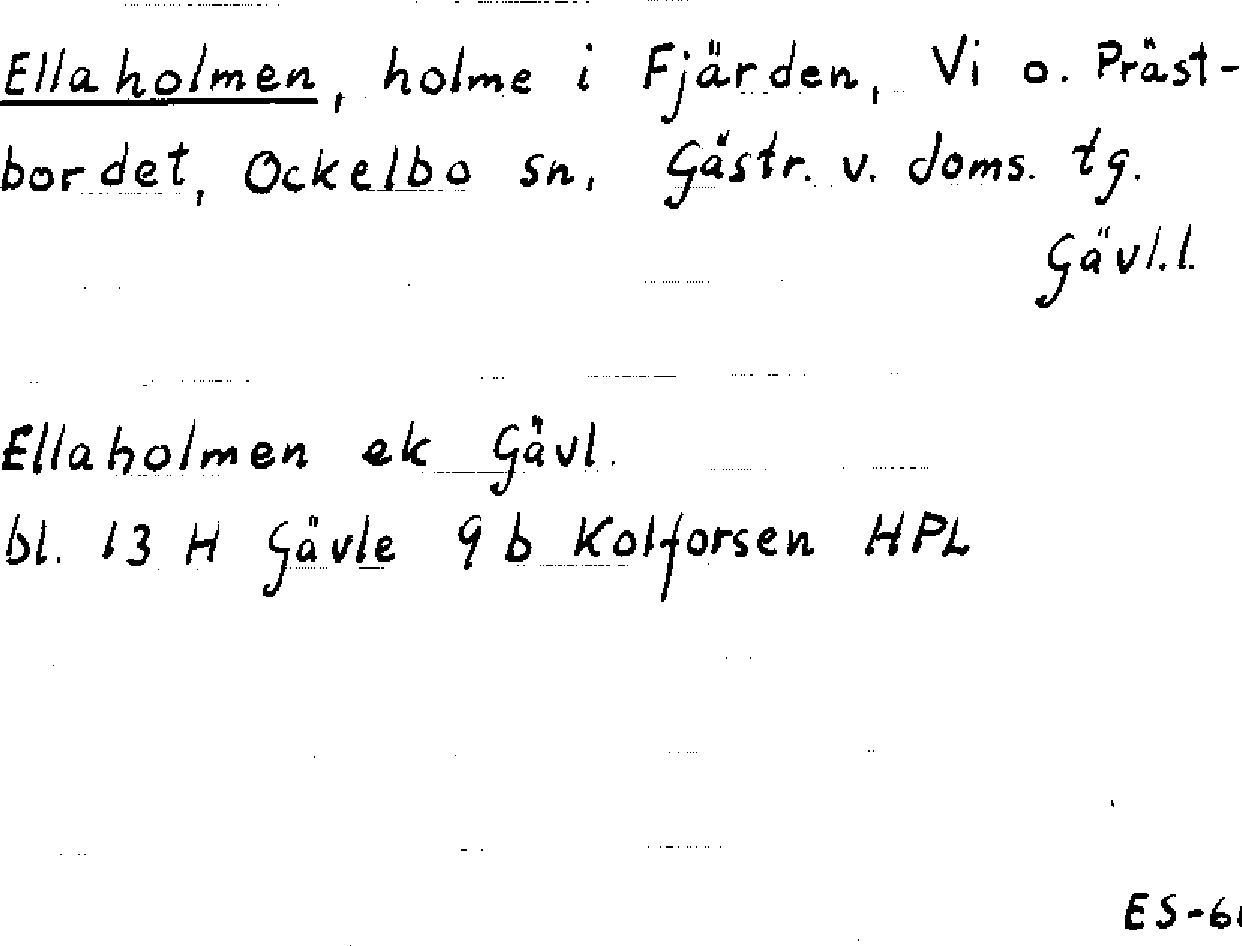 Ellaholmen, holme i Fjärden, Vi o. Präst-
bordet, Ockelbo sn, Gästr. v. doms. tg.
Gävl.l.
Ellaholmen ek Gävl.
bl. 13 H Gävle 9 b Kolforsen HPL